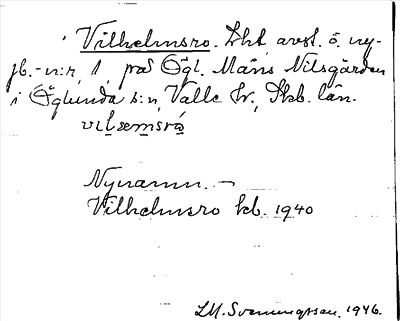 Vilhelmsro. Lht, avst. ö. ny-
jb.-n:r 1, på Ögl. Måns Nilsgården
i Öglunda s:n, Valle hr, Skb. län.
vɪlsemsrå
Nynamn. –
Vilhelmsro kb. 1940
LM. Svenungsson. 1946.